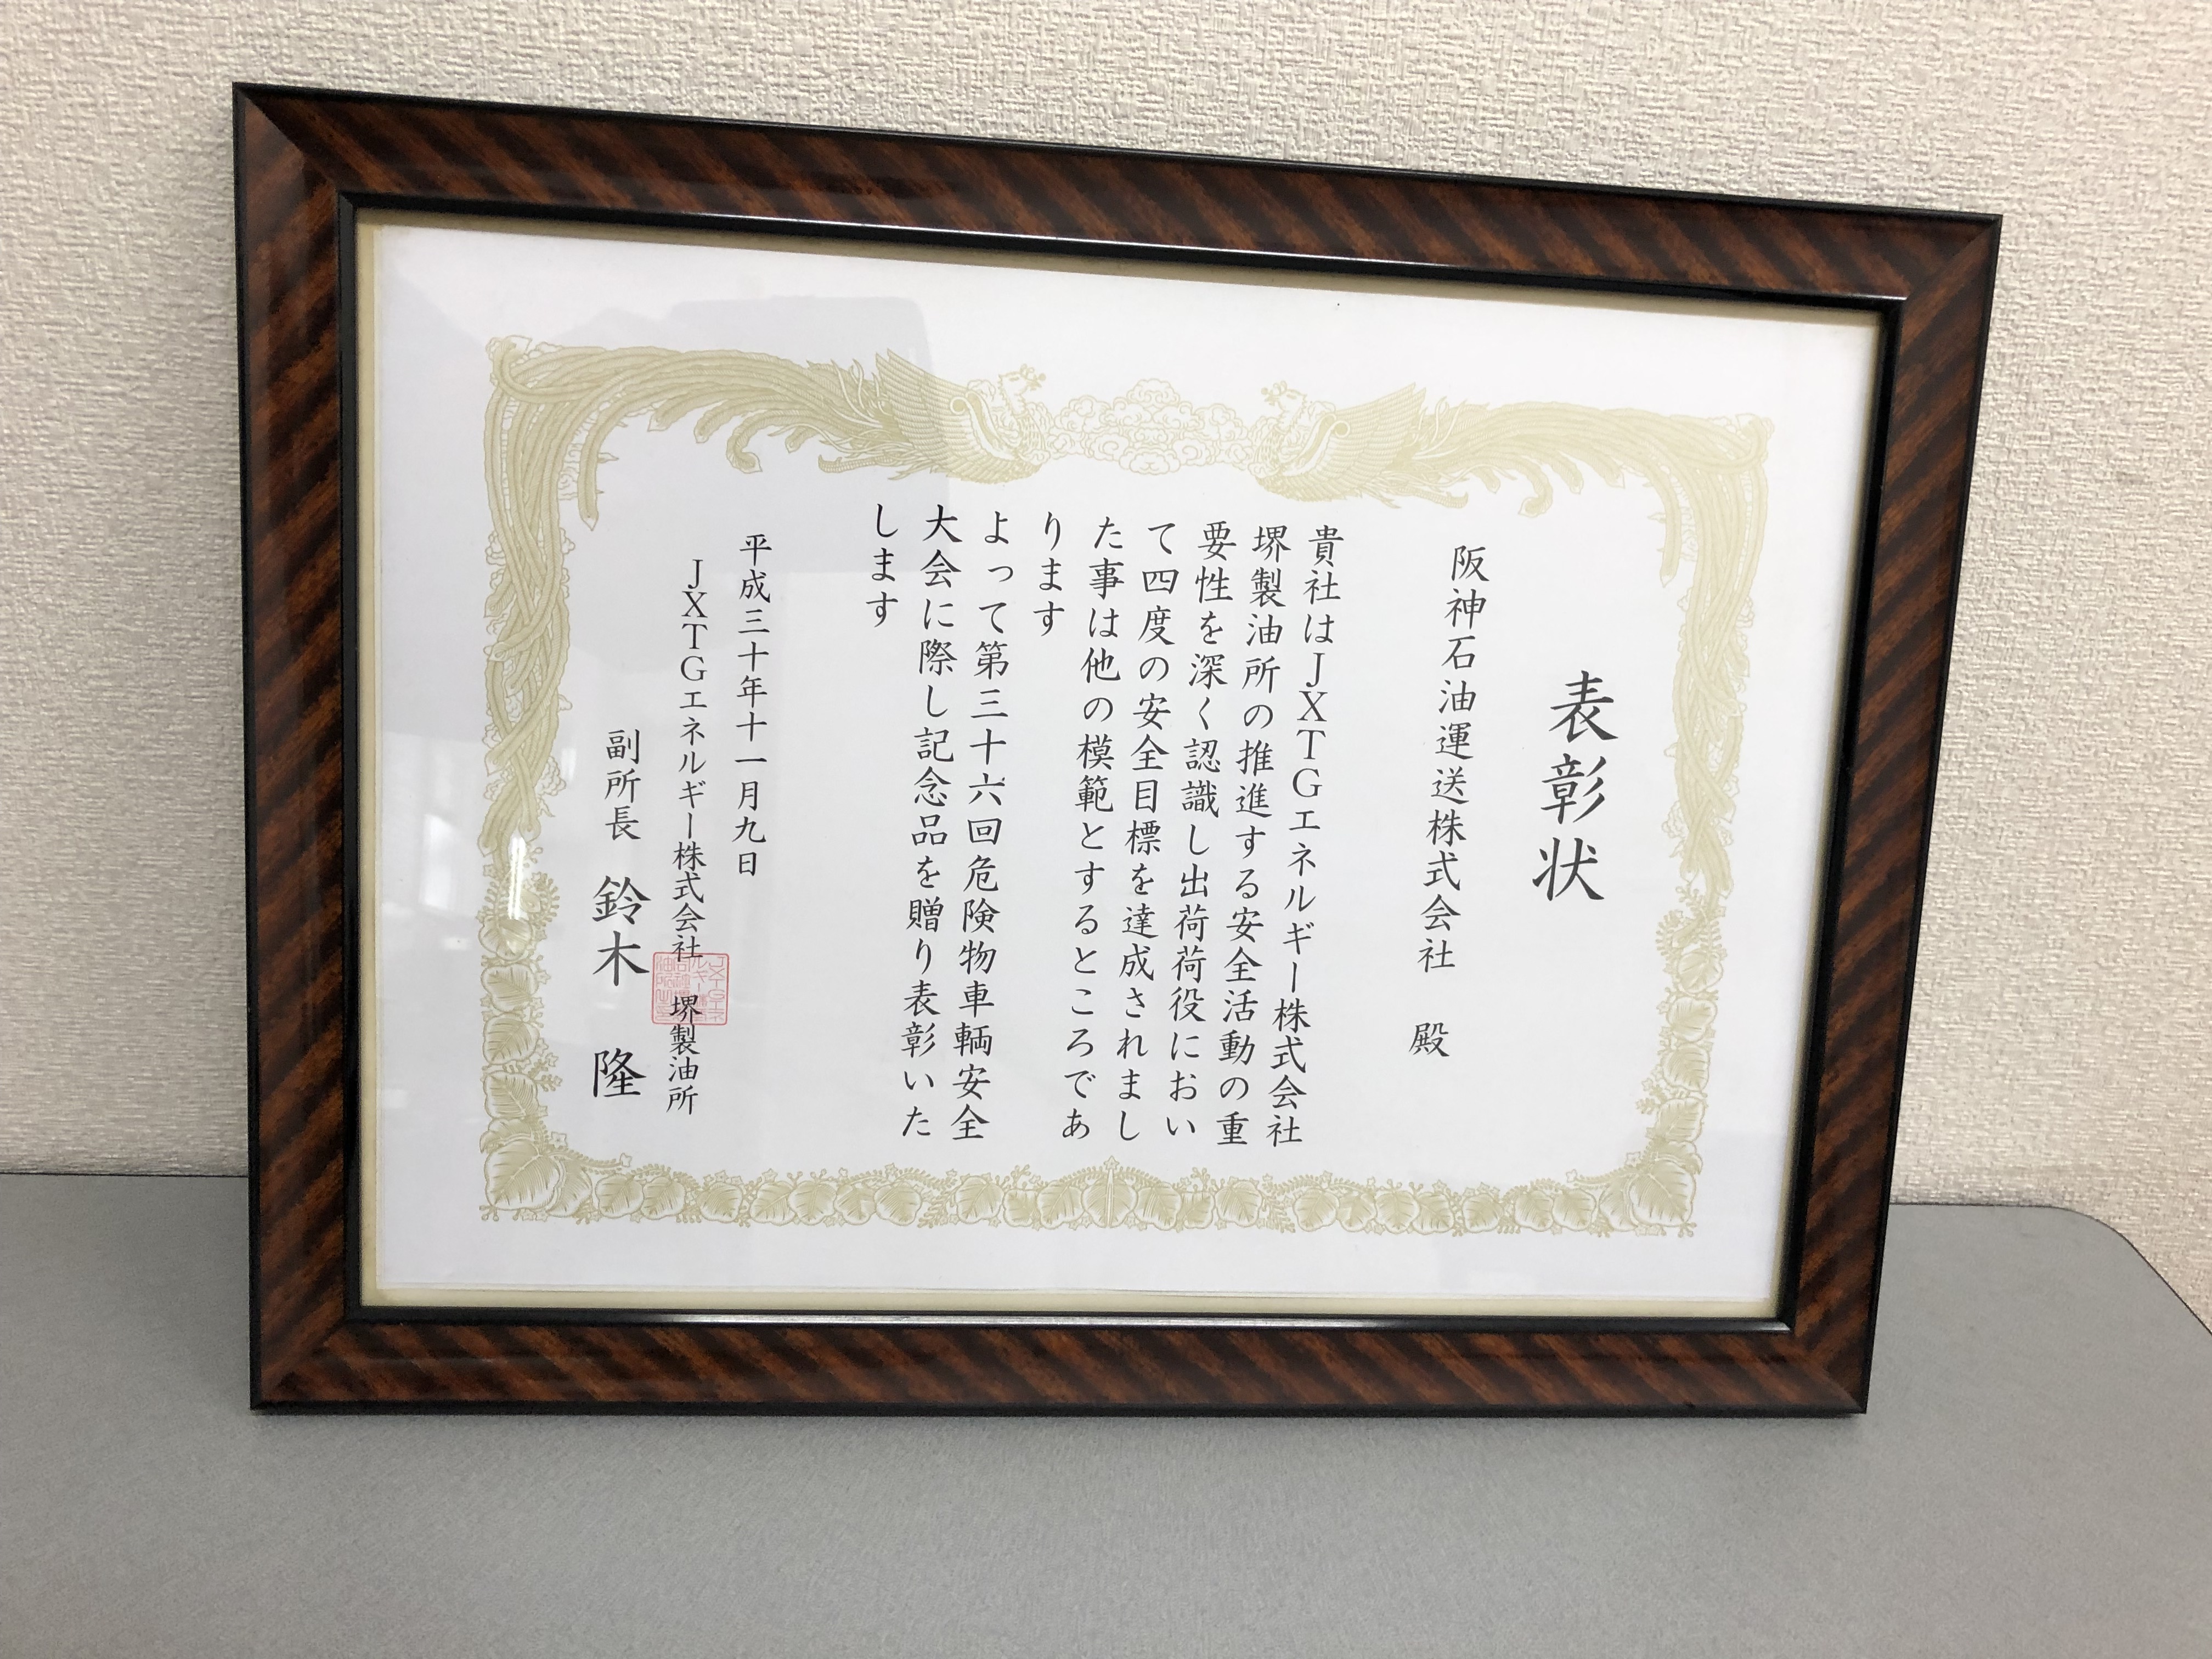 表彰状
阪神石油運送株式会社 殿
貴社はJXTGエネルギー株式会社
堺製油所の推進する安全活動の重
要性を深く認識し出荷荷役におい
て四度の安全目標を達成されまし
た事は他の模範とするところであ
ります
よって第三十六回危険物車輌安全
大会に際し記念品を贈り表彰いた
します
平成三十年十一月九日
JXTGエネルギー株式会社 堺製油所
副所長 鈴木 隆